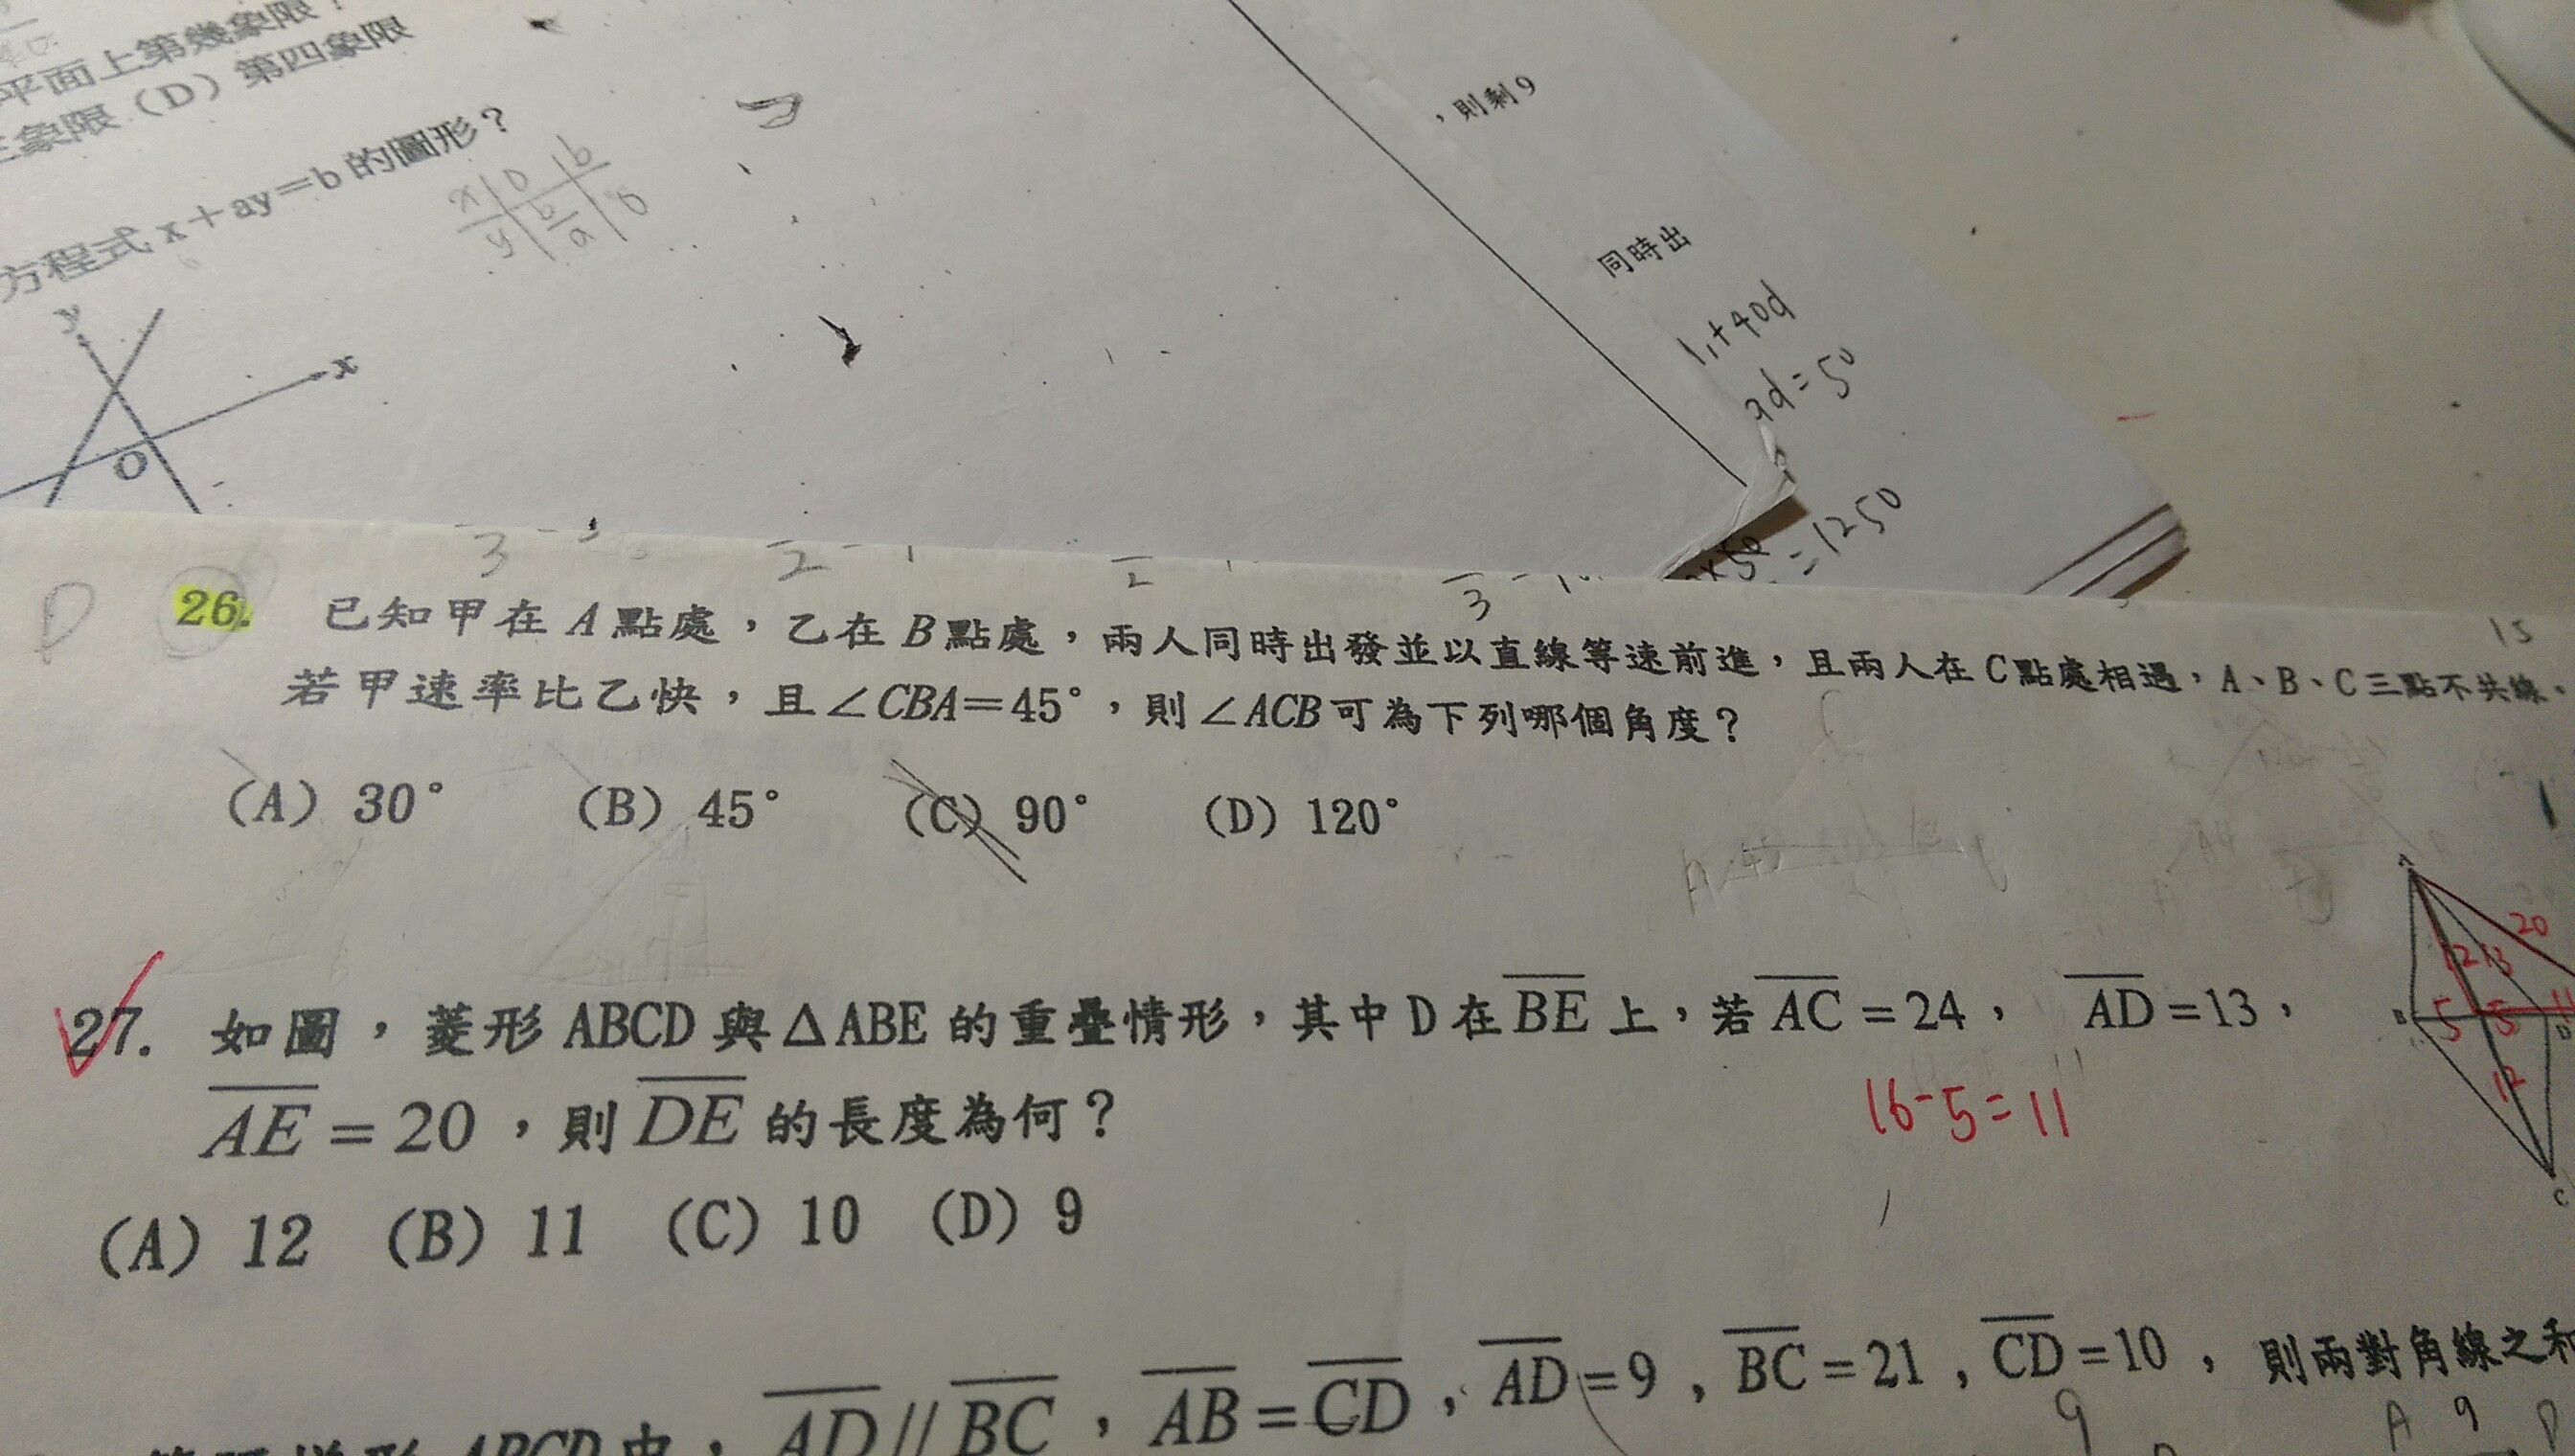 平面上第幾象限?
象限(D)第四象限
方程式 x+ay=b 的圖形?
x 0 b
y b/a 0
y
x
O
,則剩9
同時出
ad=50
=1250
D
26. 已知甲在 A 點處,乙在 B 點處,兩人同時出發並以直線等速前進,且兩人在 C 點處相遇,A、B、C 三點不共線。
若甲速率比乙快,且∠CBA=45°,則∠ACB 可為下列哪個角度?
(A) 30° (B) 45° (C) 90° (D) 120°
15
27. 如圖,菱形 ABCD 與 △ABE 的重疊情形,其中 D 在 BE 上,若 AC=24, AD=13,
AE=20,則 DE 的長度為何?
16-5=11
(A) 12 (B) 11 (C) 10 (D) 9
A
20
12 13
5 5 11
12
C
ABCD 中,AD//BC,AB=CD,AD=9,BC=21,CD=10,則兩對角線之和
9
A 9 D